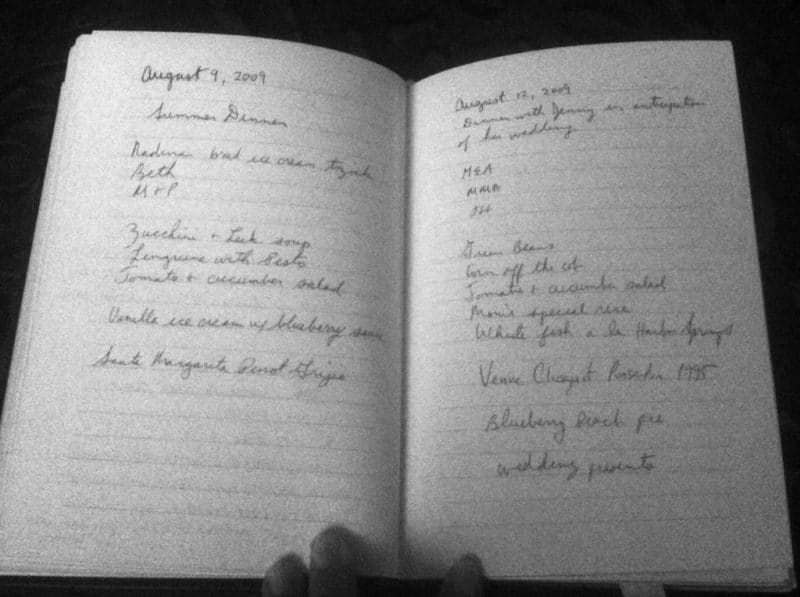 August 9, 2009
Summer Dinner
Nadine ice cream
Beth
M + P
Zucchini + Leek soup
Linguine with Pesto
Tomato + cucumber salad
Vanilla ice cream w/ blueberry sauce
Santa Margarita Pinot Grigio
August 12, 2009
Dinner with Jenny in anticipation
of her wedding.
M&A
MMA
Green Beans
Corn off the cob
Tomato + cucumber salad
Mom's special rice
White fish a la Harbor Springs
1995
Blueberry Peach pie
wedding presents